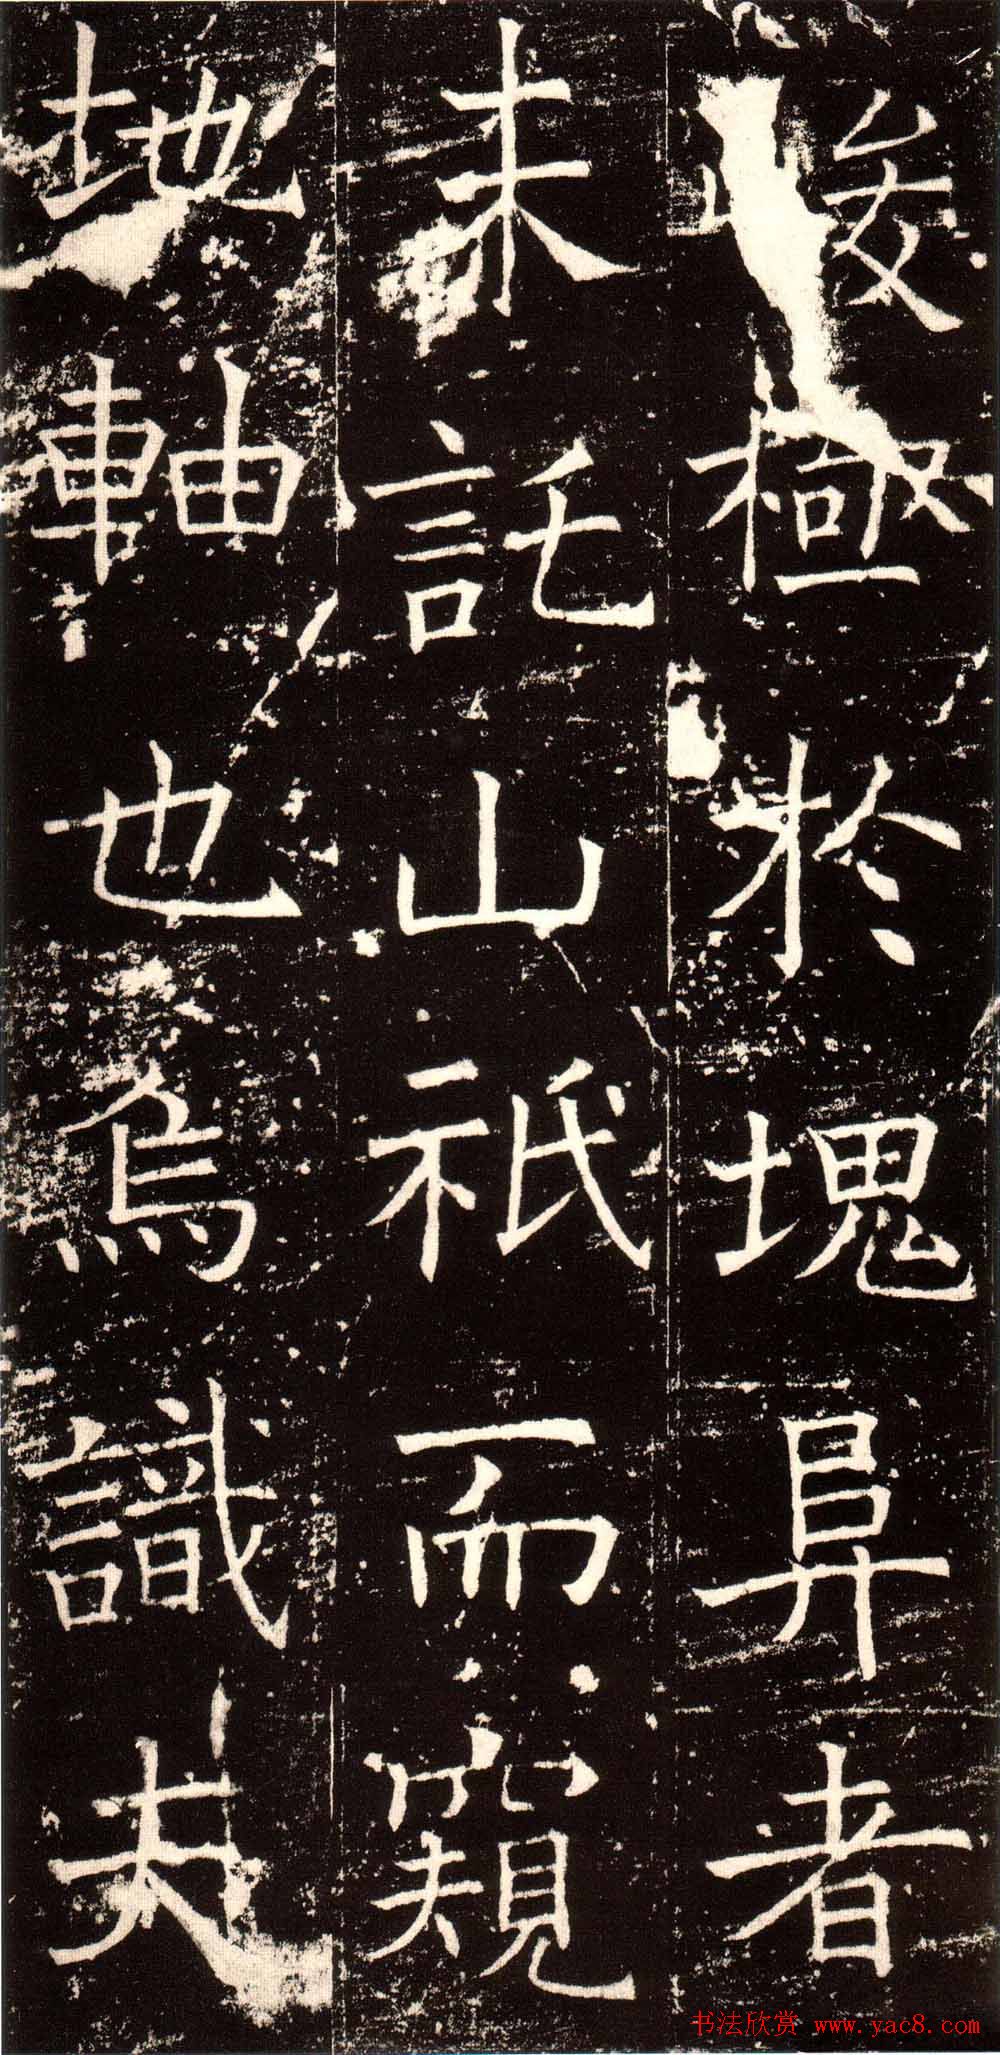 峻極於塊阜者
未託山祇而窺
地軸也焉識夫
书法欣赏 www.yac8.com